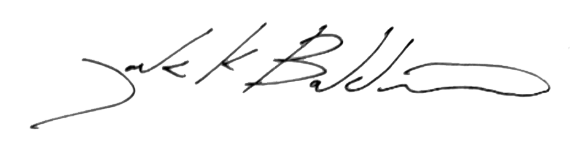 Jack K Baldwin